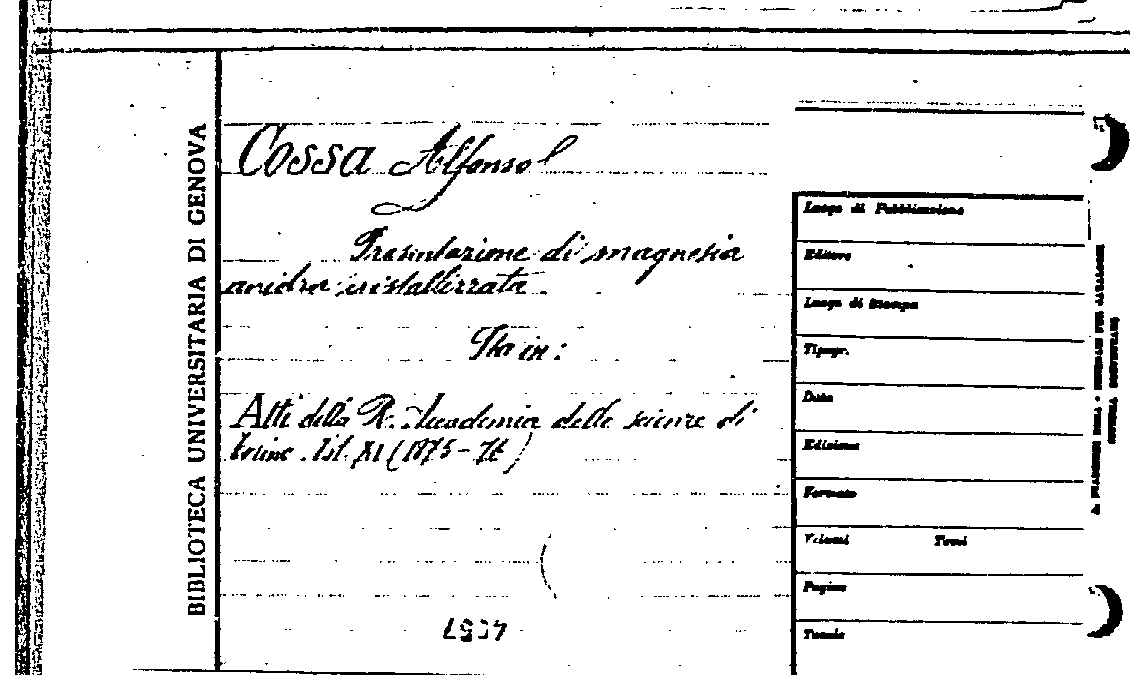 BIBLIOTECA UNIVERSITARIA DI GENOVA
Cossa Alfonso
Presentazione di magnesia
anidra cristallizzata
Sta in:
Atti della R. Accademia delle scienze di
Torino. Vol. XI (1875-76)
Luogo di Pubblicazione
Editore
Luogo di Stampa
Tipogr.
Data
Edizione
Formato
Volumi Tomi
Pagine
Tavole